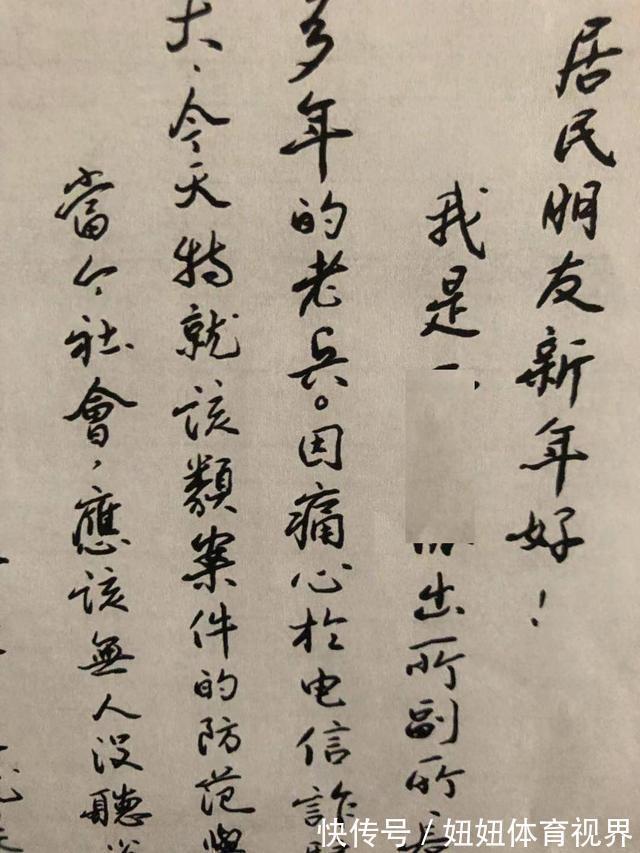 居民朋友新年好！
我是一 出所副所長
多年的老兵。因痛心於电信詐騙
大、今天特就该類案件的防范與
當今社會，應该無人没聽说
快传号／妞妞体育视界